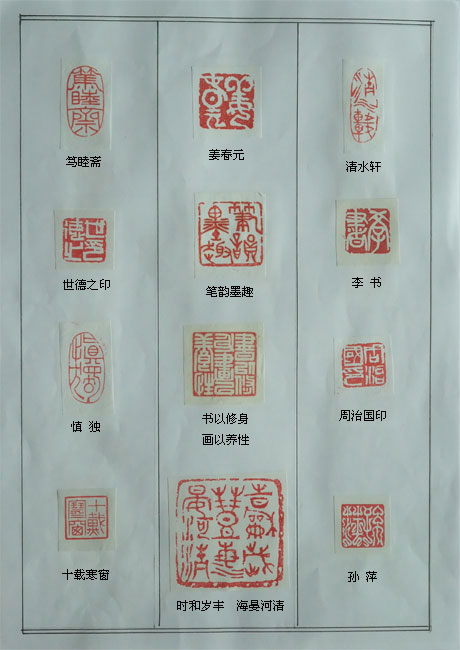 笃睦斋
姜春元
清水轩
世德之印
笔韵墨趣
李 书
慎 独
书以修身
画以养性
周治国印
十载寒窗
时和岁丰 海曼河清
孙 萍